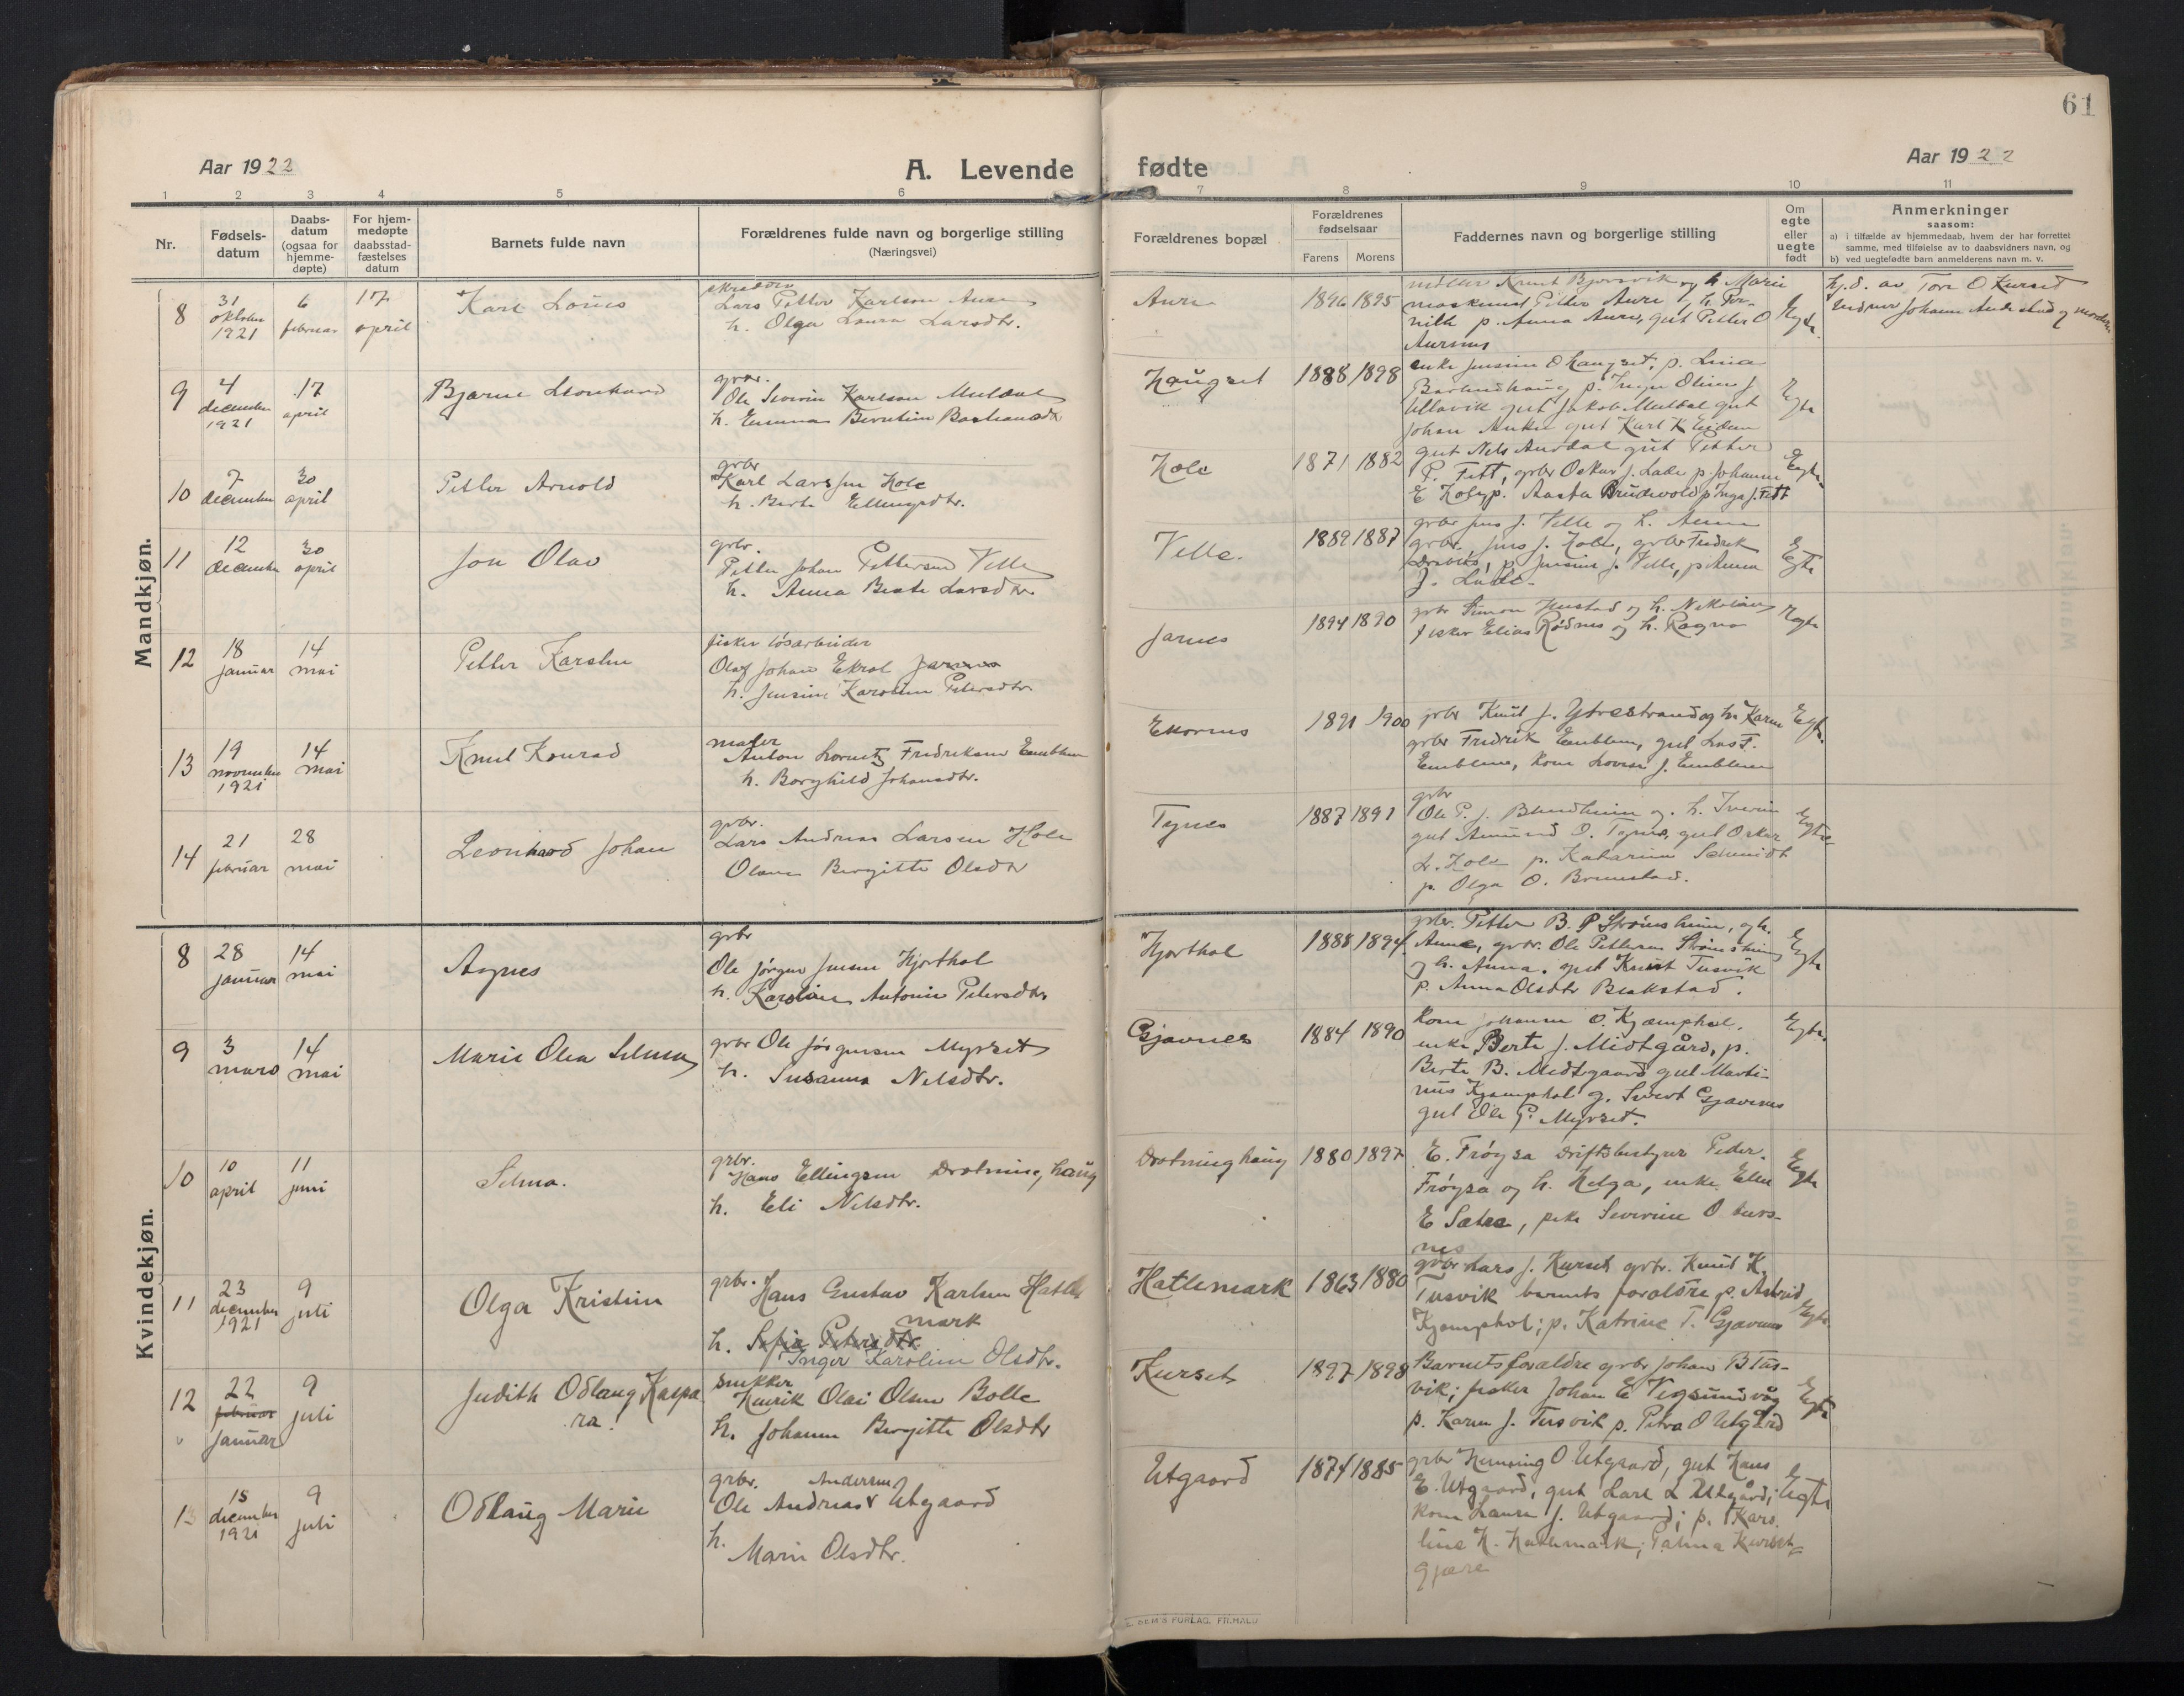 61
Aar 1922
A. Levende fødte
Aar 1922
1 2 3 4 5 6 7 8 9 10 11
Nr.
Fødsels-
datum
Daabs-
datum
(ogsaa for
hjemme-
døpte)
For hjem-
medøpte
daabsstad-
fæstelses
datum
Barnets fulde navn
Forældrenes fulde navn og borgerlige stilling
(Næringsvei)
Forældrenes bopæl
Forældrenes
fødselsaar
Farens Morens
Faddernes navn og borgerlige stilling
Om
egte
eller
uegte
født
Anmerkninger
saasom:
a) i tilfælde av hjemmedaab, hvem der har forrettet
samme, med tilføielse av to daabsvidners navn, og
b) ved uegtefødte barn anmelderens navn m. v.
Mandkjøn.
8
31
oktober
1921
6
februar
17
april
Karl Louis
skrædder
Lars Petter Karlsen Aure
h. Olga Laura Larsdtr.
Aure
1896 1895
Knut Bjørsvik og h. Marie
maskinist Petter Aure, h. Per-
nille p. Anna Aure, gut Petter O
Aursnes
Egte
hj.d. av Tore O Kurset
Johanne
9
4
december
1921
17
april
Bjarne Leonhard
grbr.
Ole Severin Karlsen Muldal
h. Emma Berntine Bastiansdtr
Haugset
1888 1898
enke Jensine O Haugset, p. Lina
p. Inga Oline J.
Ullavik gut Jakob Muldal gut
Johan gut Karl K
Egte
10
7
december
30
april
Petter Arnold
grbr
Karl Larssen Hole
h. Berte Ellingsdtr.
Hole
1871 1882
gut Nils Aurdal gut Petter
P. Fett, grbr Oskar J. Lade p. Johanne
E Hole, p. Aasta Brudevold p Inga J. Fett
Egte
11
12
december
30
april
Jon Olav
grbr.
Petter Johan Pettersen Velle
h. Anna Beate Larsdtr.
Velle.
1889 1887
grbr Jens J. Velle og h. Anna
grbr. Jens J. Hole, grbr Fredrik
p. Jensine J. Velle, p Anna
J. Lade.
Egte
12
18
januar
14
mai
Petter Karsten
fisker løsarbeider
Olaf Johan Ekrol Jarnes
h. Jensine Karoline Petersdtr.
Jarnes
1894 1890
grbr Simon Hustad og h. Nikoline
fisker Elias Rødnes og h. Ragna
Egte
13
19
november
1921
14
mai
Knut Konrad
maler
Anton Lornitz Fredriksen Emblem
h. Borghild Johansdtr.
Ekornes
1891 1900
grbr Knut J. Ytrestrand og h. Karen
grbr Fredrik Emblem, gut Lars F.
Emblem, kone Lovise J. Emblem
Egte
14
21
februar
28
mai
Leonhard Johan
grbr.
Lars Andreas Larsen Hole
Olave Bergitte Olsdtr
Tynes
1887 1891
grbr
Ole P. J. Blindheim og h. Iverine
gut Amund O. Tynes, gut Oskar
L. Hole p. Katarina Schmidt
p. Olga O. Brunstad.
Egte
Kvindekjøn.
8
28
januar
14
mai
Agnes
grbr
Ole Jørgen Jensen Hjorthol
h. Karoline Antonie Petersdtr.
Hjorthol
1888 1894
grbr. Petter B. P Strømsheim, og h.
Anne, grbr. Ole Pettersen Strømsheim
og h. Anna. gut Knut Tusvik
p. Anna Olsdtr Blakstad.
Egte
9
3
mars
14
mai
Marie Olea Selma
grbr Ole Jørgensen Myrset
h. Susanna Nilsdtr.
Gjævnes
1884 1890
Kone Johanne O. Kjæmphol.
enke Berte J. Midtgård, p.
Berte B. Midtgaard gut Marti-
nus Kjæmphol og. Sivert Gjævenes
gut Ole P. Myrset.
Egte.
10
10
april
11
juni
Selma.
grbr.
Hans Ellingsen Drotninghaug
h. Eli Nilsdtr.
Drotninghaug
1880 1897
E. Frøysa Driftsbestyrer Peder.
Frøysa og h. Helga, enke Ellen
E Sætre, pike Severine O Aurs-
nes
Egte
11
23
december
1921
9
juli
Olga Kristine
grbr. Hans Gustav Karlsen Hatle
mark
h. Sofie Petersdtr.
Inger Karoline Olsdtr.
Hatlemark
1863 1880
grbr Lars J. Kurset grbr. Knut K.
Tusvik barnets forældre p. Astrid
Kjæmphol; p. Katrine T. Gjævnes
Egte.
12
22
februar
januar
9
juli
Judith Odlaug Kaspa
ra.
snekker
Henrik Olai Olsen Bolle
h. Johanne Bergitte Olsdtr
Kurset
1897 1898
Barnets forældre grbr Johan B Tus-
vik; fisker Johan E Vegsundvåg
p. Karen J. Tusvik p. Petra O Utgård
Egte
13
15
december
1921
9
juli
Odlaug Marie
grbr. Andersen
Ole Andreas Utgaard
h.
Marie Olsdtr.
Utgaard
1874 1885
grbr Henning O Utgaard, gut Hans
E. Utgaard, gut Karl L Utgård;
kone Laura J. Utgaard; p. Karo-
line H. Hatlemark; Palma Kurset-
gjære
Egte
E. SEM'S FORLAG, FR.HALD